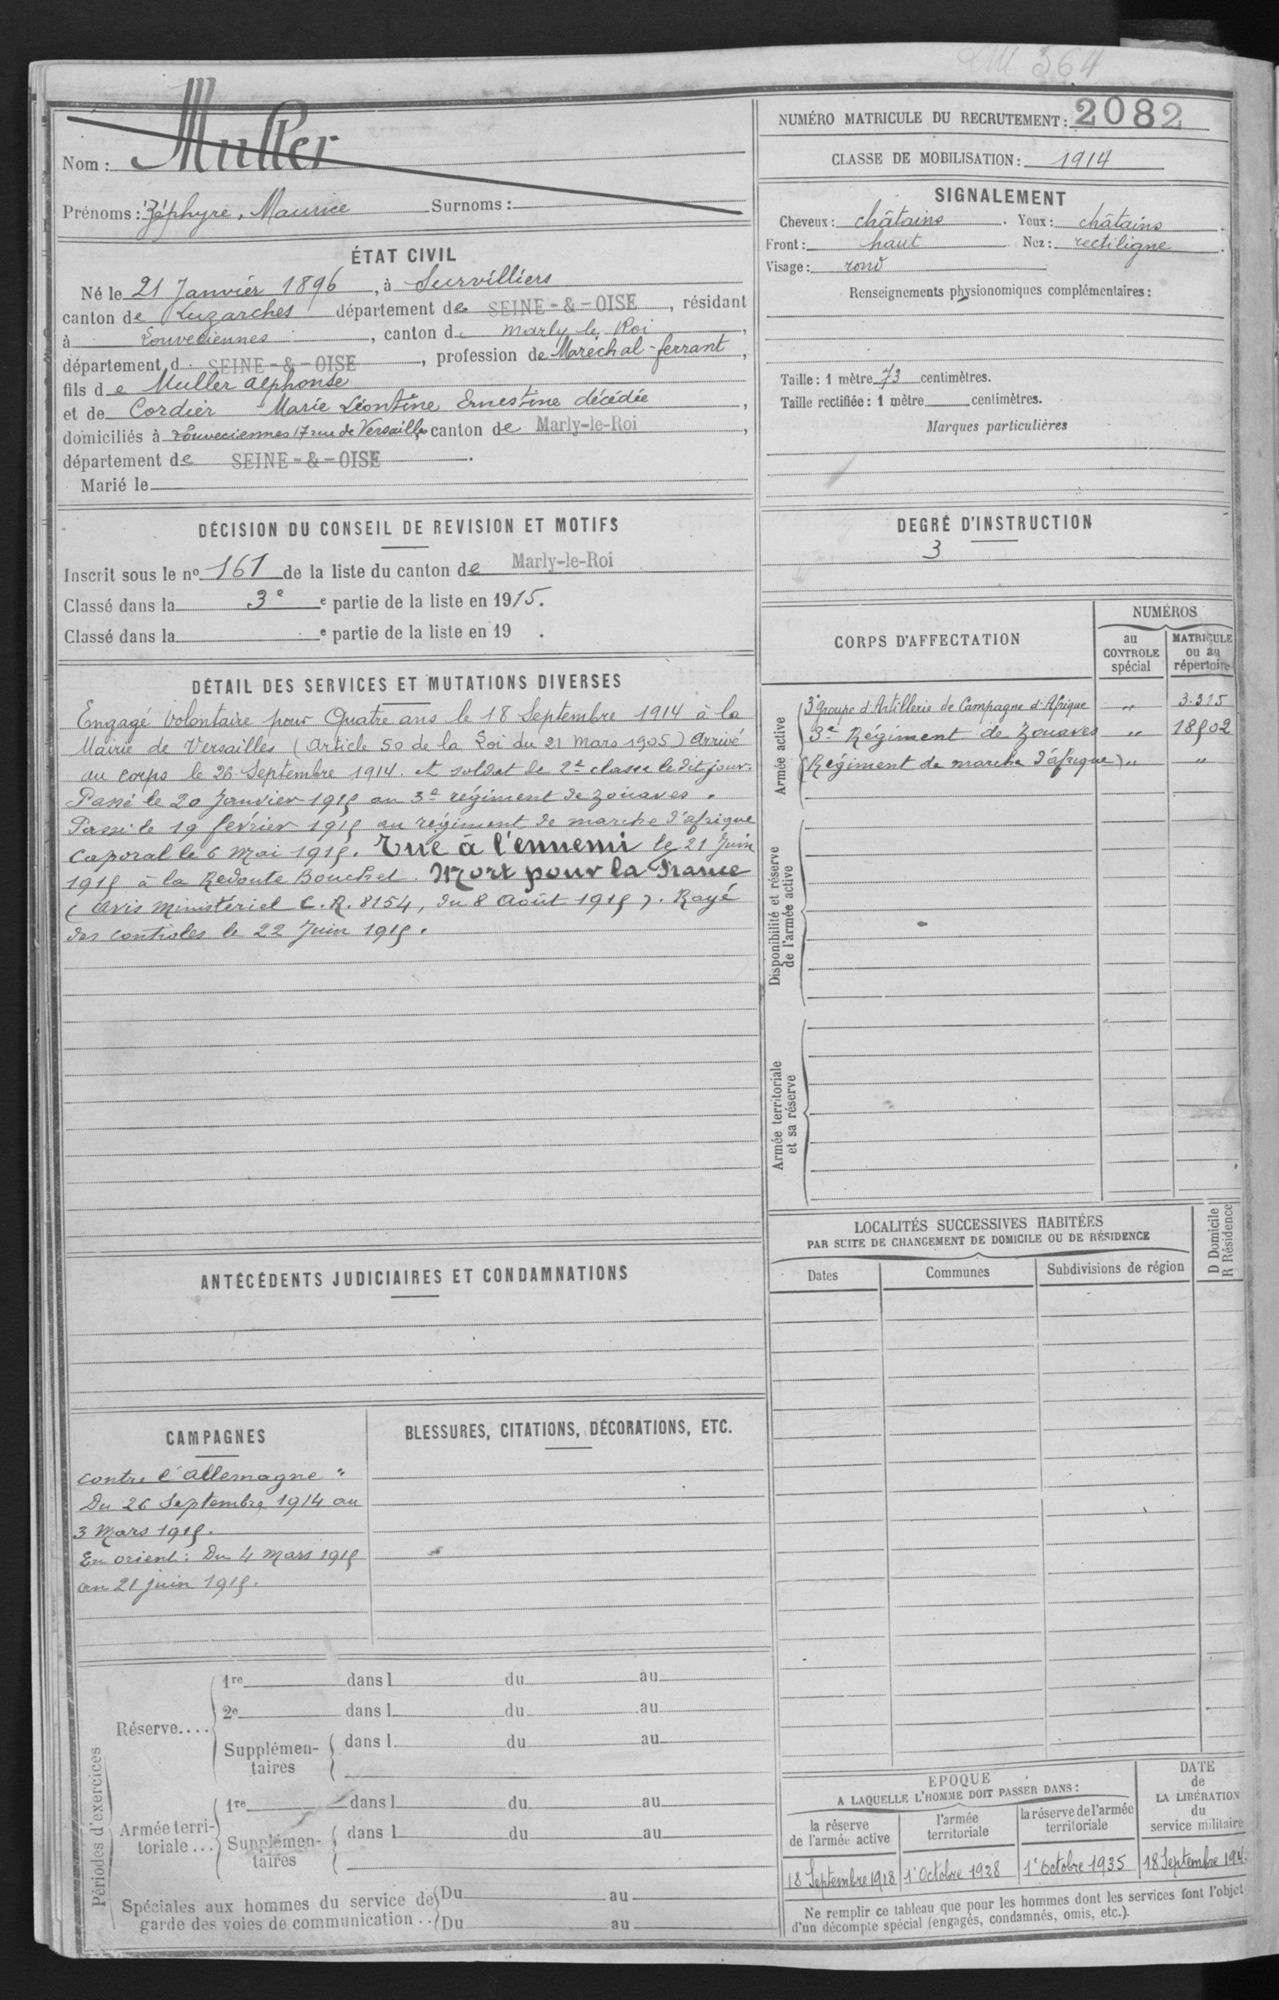 364
Nom : Muller
Prénoms : Zéphyre, Maurice Surnoms :
ÉTAT CIVIL
Né le 21 Janvier 1896, à Survilliers
canton de Luzarches département de SEINE-&-OISE, résidant
à Louveciennes, canton d. Marly le Roi,
département d. SEINE-&-OISE, profession de Maréchal-ferrant,
fils de Muller Alphonse
et de Cordier Marie Léontine Ernestine décédée,
domiciliés à Louveciennes 17 rue de Versailles canton de Marly-le-Roi,
département de SEINE-&-OISE.
Marié le
DÉCISION DU CONSEIL DE REVISION ET MOTIFS
Inscrit sous le nº 161 de la liste du canton de Marly-le-Roi
Classé dans la 3e e partie de la liste en 1915.
Classé dans la e partie de la liste en 19 .
DÉTAIL DES SERVICES ET MUTATIONS DIVERSES
Engagé volontaire pour Quatre ans le 18 Septembre 1914 à la
Mairie de Versailles (Article 50 de la Loi du 21 mars 1905) Arrivé
au corps le 26 Septembre 1914. et soldat de 2e classe le dit jour.
Passé le 20 Janvier 1915 au 3e régiment de zouaves.
Passé le 19 février 1915 au régiment de marche d'afrique
Caporal le 6 Mai 1915. Tué à l'ennemi le 21 Juin
1915 à la Redoute Bouchet. Mort pour la France
(avis ministériel C.R. 8154, du 8 Août 1915). Rayé
des contrôles le 22 Juin 1915.
ANTÉCÉDENTS JUDICIAIRES ET CONDAMNATIONS
CAMPAGNES
contre l'Allemagne :
Du 26 Septembre 1914 au
3 Mars 1915.
En orient : Du 4 mars 1915
au 21 juin 1915.
BLESSURES, CITATIONS, DÉCORATIONS, ETC.
Périodes d'exercices
Réserve....
1re dans l du au
2e dans l du au
Supplémen-
taires
dans l du au
Armée terri-
toriale...
1re dans l du au
Supplémen-
taires
dans l du au
Spéciales aux hommes du service de
garde des voies de communication..
Du au
Du au
NUMÉRO MATRICULE DU RECRUTEMENT : 2082
CLASSE DE MOBILISATION : 1914
SIGNALEMENT
Cheveux : châtains. Yeux : châtains.
Front : haut Nez : rectiligne.
Visage : rond
Renseignements physionomiques complémentaires :
Taille : 1 mètre 73 centimètres.
Taille rectifiée : 1 mètre centimètres.
Marques particulières
DEGRÉ D'INSTRUCTION
3
CORPS D'AFFECTATION
NUMÉROS
au
CONTROLE
spécial
MATRICULE
ou au
répertoire
Armée active
3e Groupe d'Artillerie de Campagne d'Afrique " 3.315
3e Régiment de Zouaves " 18902
(Régiment de marche d'afrique) " "
Disponibilité et réserve
de l'armée active
Armée territoriale
et sa réserve
LOCALITÉS SUCCESSIVES HABITÉES
PAR SUITE DE CHANGEMENT DE DOMICILE OU DE RÉSIDENCE
Dates Communes Subdivisions de région
D Domicile
R Résidence
EPOQUE
A LAQUELLE L'HOMME DOIT PASSER DANS :
la réserve
de l'armée active
l'armée
territoriale
la réserve de l'armée
territoriale
DATE
de
LA LIBÉRATION
du
service militaire
18 Septembre 1918 1er Octobre 1928 1er Octobre 1935 18 Septembre
Ne remplir ce tableau que pour les hommes dont les services font l'objet
d'un décompte spécial (engagés, condamnés, omis, etc.).